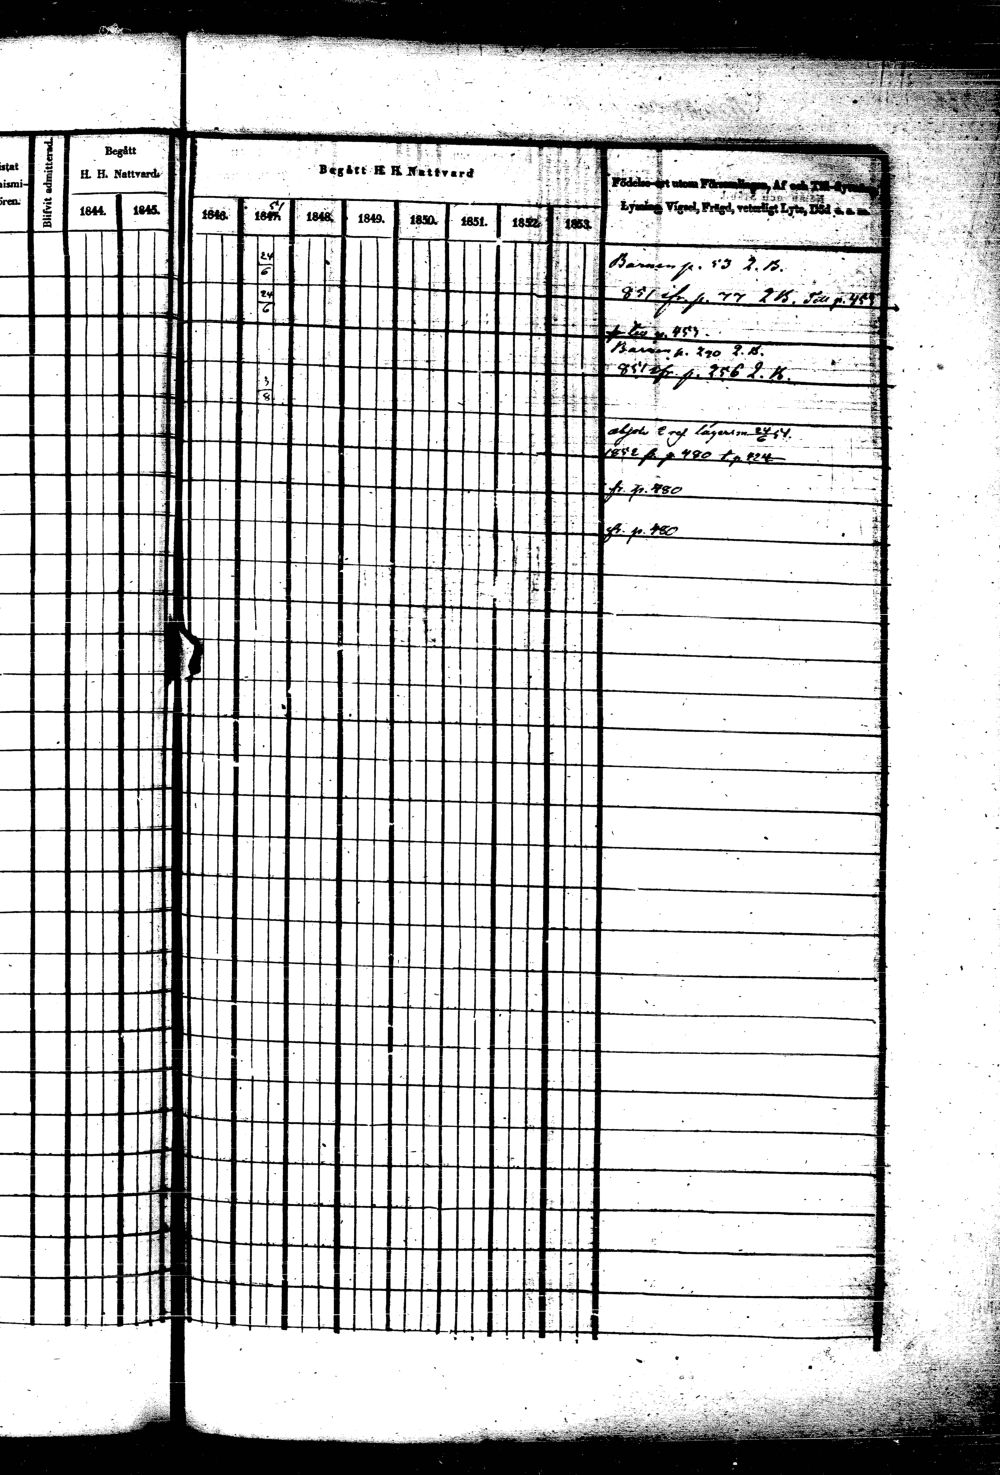 istat
Blifvit admitterad.
Begått
H. H. Nattvard.
1844. 1845.
Begått H. H. Nattvard
1846. 1847. 1848. 1849. 1850. 1851. 1852. 1853.
51
Födelse-ort utom Församlingen, Af och Till-flyttning,
Lysning, Vigsel, Frägd, veterligt Lyte, Död o. s. m.
24/6
Barnen p. 53 2. B.
24/6
851 fr. p. 77 2 B. Till p. 453
p. 453.
Barnen p. 290 2. B.
3/8
851 fr. p. 256 2. B.
24/6 51.
1852 fr. p 480 t. p 424
fr. p. 480
fr. p. 480